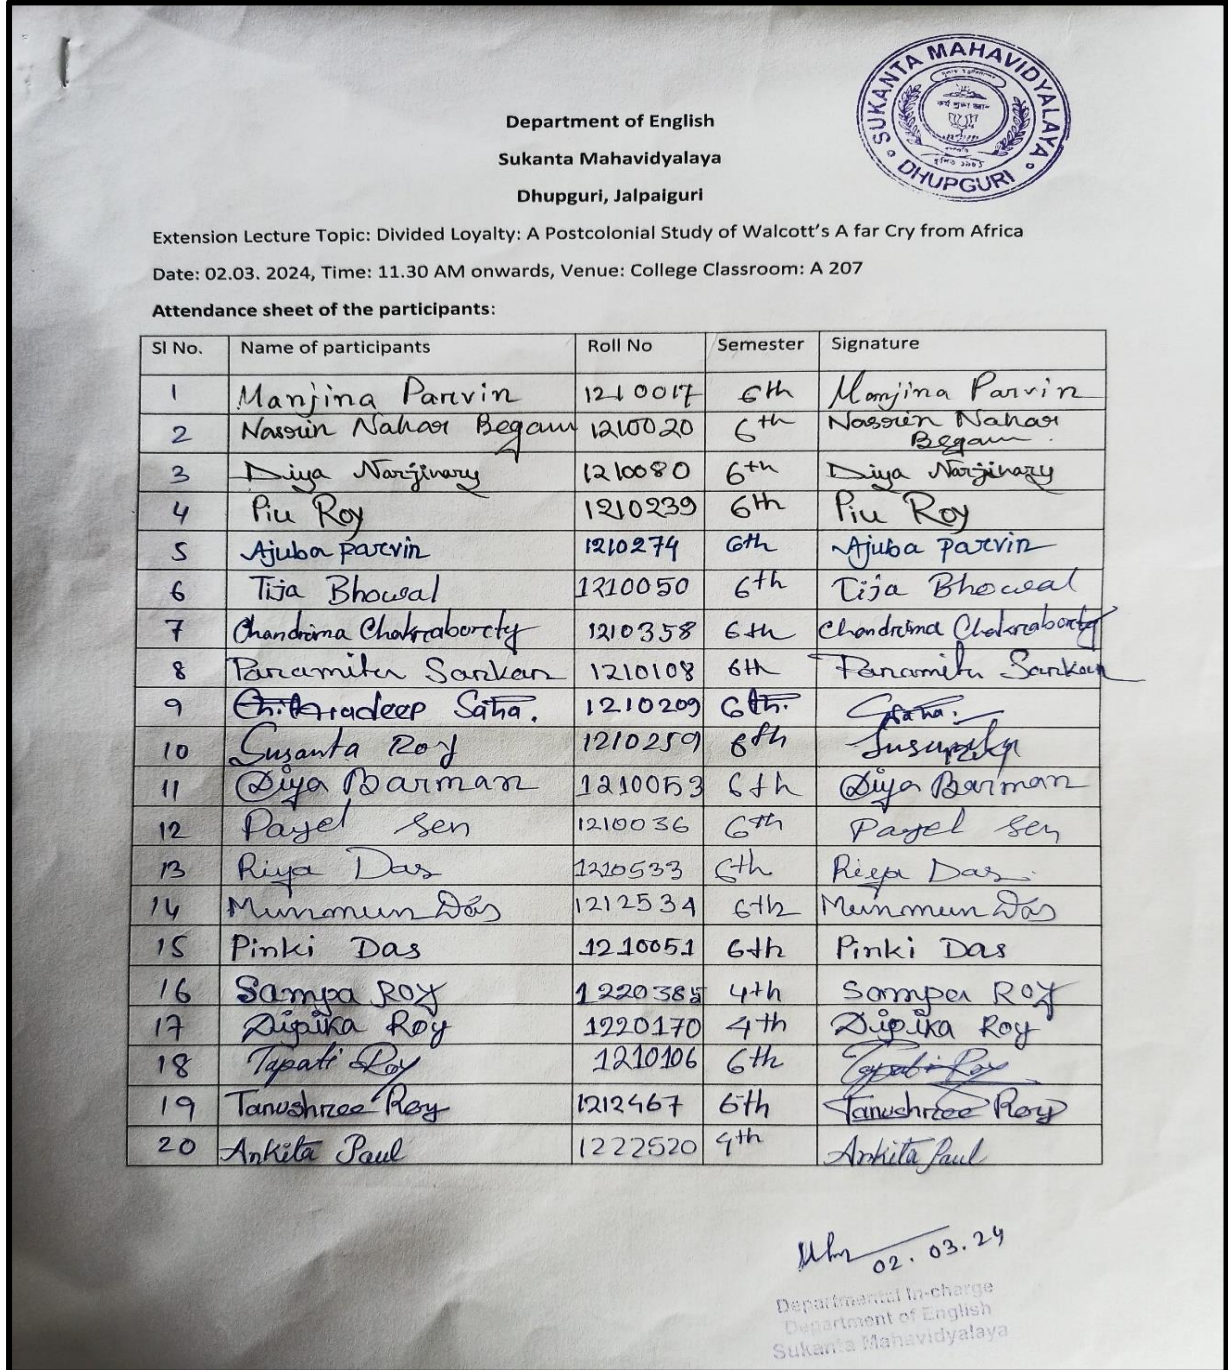 SUKANTA MAHAVIDYALAYA
DHUPGURI
Department of English
Sukanta Mahavidyalaya
Dhupguri, Jalpaiguri
Extension Lecture Topic: Divided Loyalty: A Postcolonial Study of Walcott's A far Cry from Africa
Date: 02.03. 2024, Time: 11.30 AM onwards, Venue: College Classroom: A 207
Attendance sheet of the participants:
Sl No. Name of participants Roll No Semester Signature
1 Manjina Parvin 1210017 6th Manjina Parvin
2 Nasrin Nahar Begam 1210020 6th Nasrin Nahar Begam
3 Diya Narjinary 1210080 6th Diya Narjinary
4 Piu Roy 1210239 6th Piu Roy
5 Ajuba parvin 1210274 6th Ajuba parvin
6 Tija Bhowal 1210050 6th Tija Bhowal
7 Chandrima Chakraborty 1210358 6th Chandrima Chakraborty
8 Paramita Sarkar 1210108 6th Paramita Sarkar
9 Saha. 1210209 6th. Saha.
10 Susanta Roy 1210259 6th
11 Diya Barman 1210053 6th Diya Barman
12 Payel Sen 1210036 6th Payel Sen
13 Riya Das 1210533 6th Riya Das
14 Munmun Das 1212534 6th Munmun Das
15 Pinki Das 1210051 6th Pinki Das
16 Sampa Roy 1220385 4th Sampa Roy
17 Dipika Roy 1220170 4th Dipika Roy
18 Tapati Roy 1210106 6th Tapati Roy
19 Tanushree Roy 1212467 6th Tanushree Roy
20 Ankita Paul 1222520 4th Ankita Paul
02.03.24
Departmental In-charge
Department of English
Sukanta Mahavidyalaya